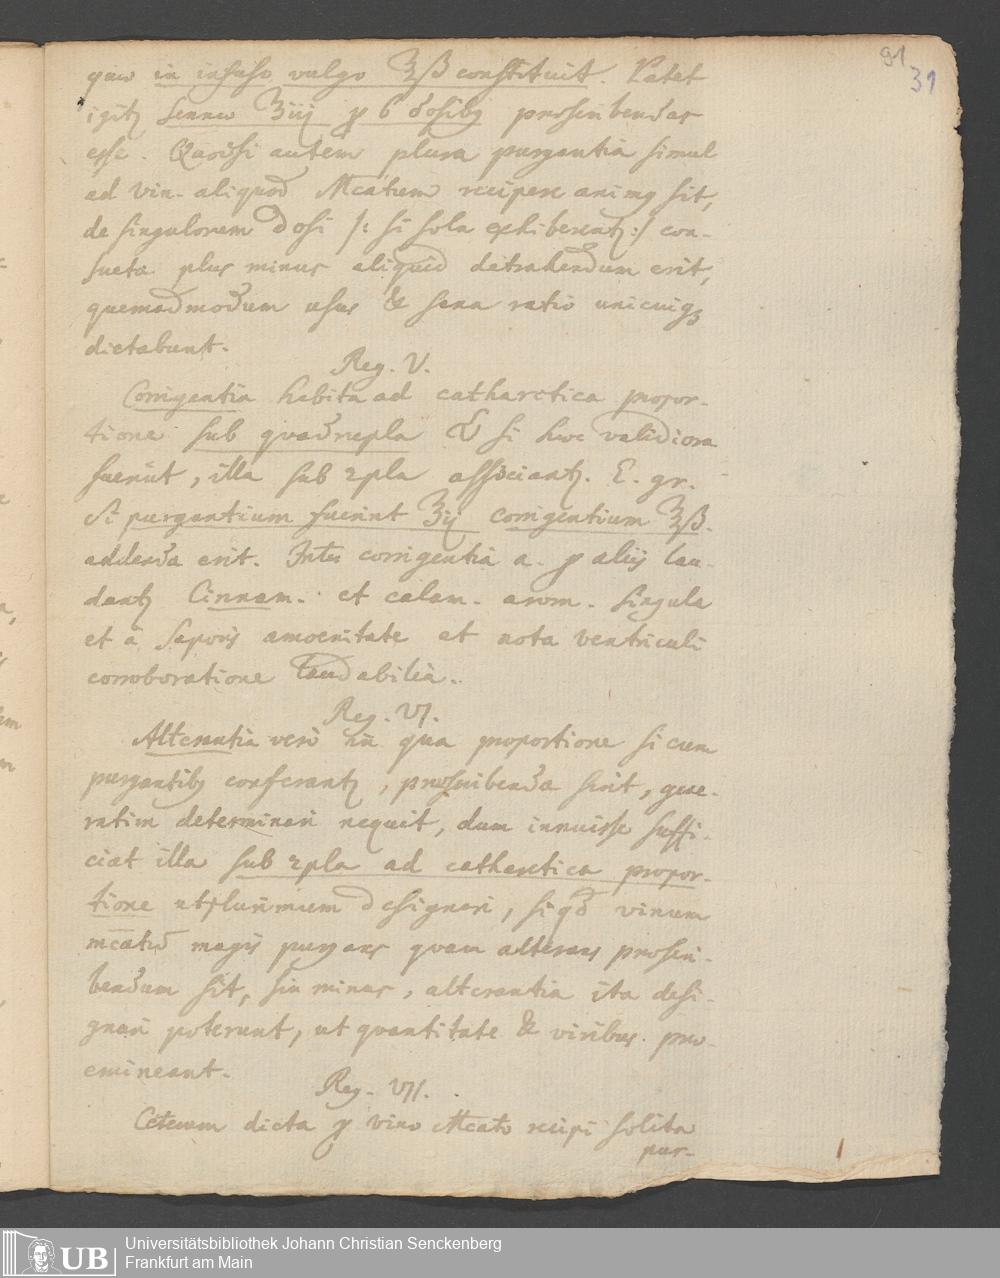 91
31
quae in infuso vulgo ʒß constituit. Patet
igitꝫ sennae ʒiij p 6 dosibꝫ praescribendas
esse. Quodsi autem plura purgantia simul
ad vin. aliquod Mcatum recipere animꝫ sit,
de singulorum dosi /: si sola exhiberentꝫ :/ con-
sueta plus minus aliquid detrahendum erit,
quemadmodum usus & sana ratio unicuiqꝫ
dictabunt.
Reg. V.
Corrigentia habita ad cathartica propor-
tione sub quadrupla & si haec validiora
fuerint, illa sub 2pla associantꝫ. E. gr.
Si purgantium fuerint ʒij corrigentium ʒß.
addenda erit. Inter corrigentia a. p aliis lau-
dantꝫ Cinnam. et calam. arom. singula
et a saporis amoenitate et nota ventriculi
corroboratione laudabilia.
Reg. VI.
Alterantia vero qua proportione si cum
purgantibꝫ conferantꝫ, praescribenda sint, quae-
ratim determinari nequit, dum innuisse suffi-
ciat illa sub 2pla ad cathartica propor-
tione utplurimum designari, siqd vinum
mcatū magis purgans quam alterans praescri-
bendum sit, sin minus, alterantia ita desi-
gnari poterunt, ut quantitate & viribus prae-
emineant.
Reg. VII.
Ceterum dicta p vino Mcato recipi solita
pur-
UB
Universitätsbibliothek Johann Christian Senckenberg
Frankfurt am Main